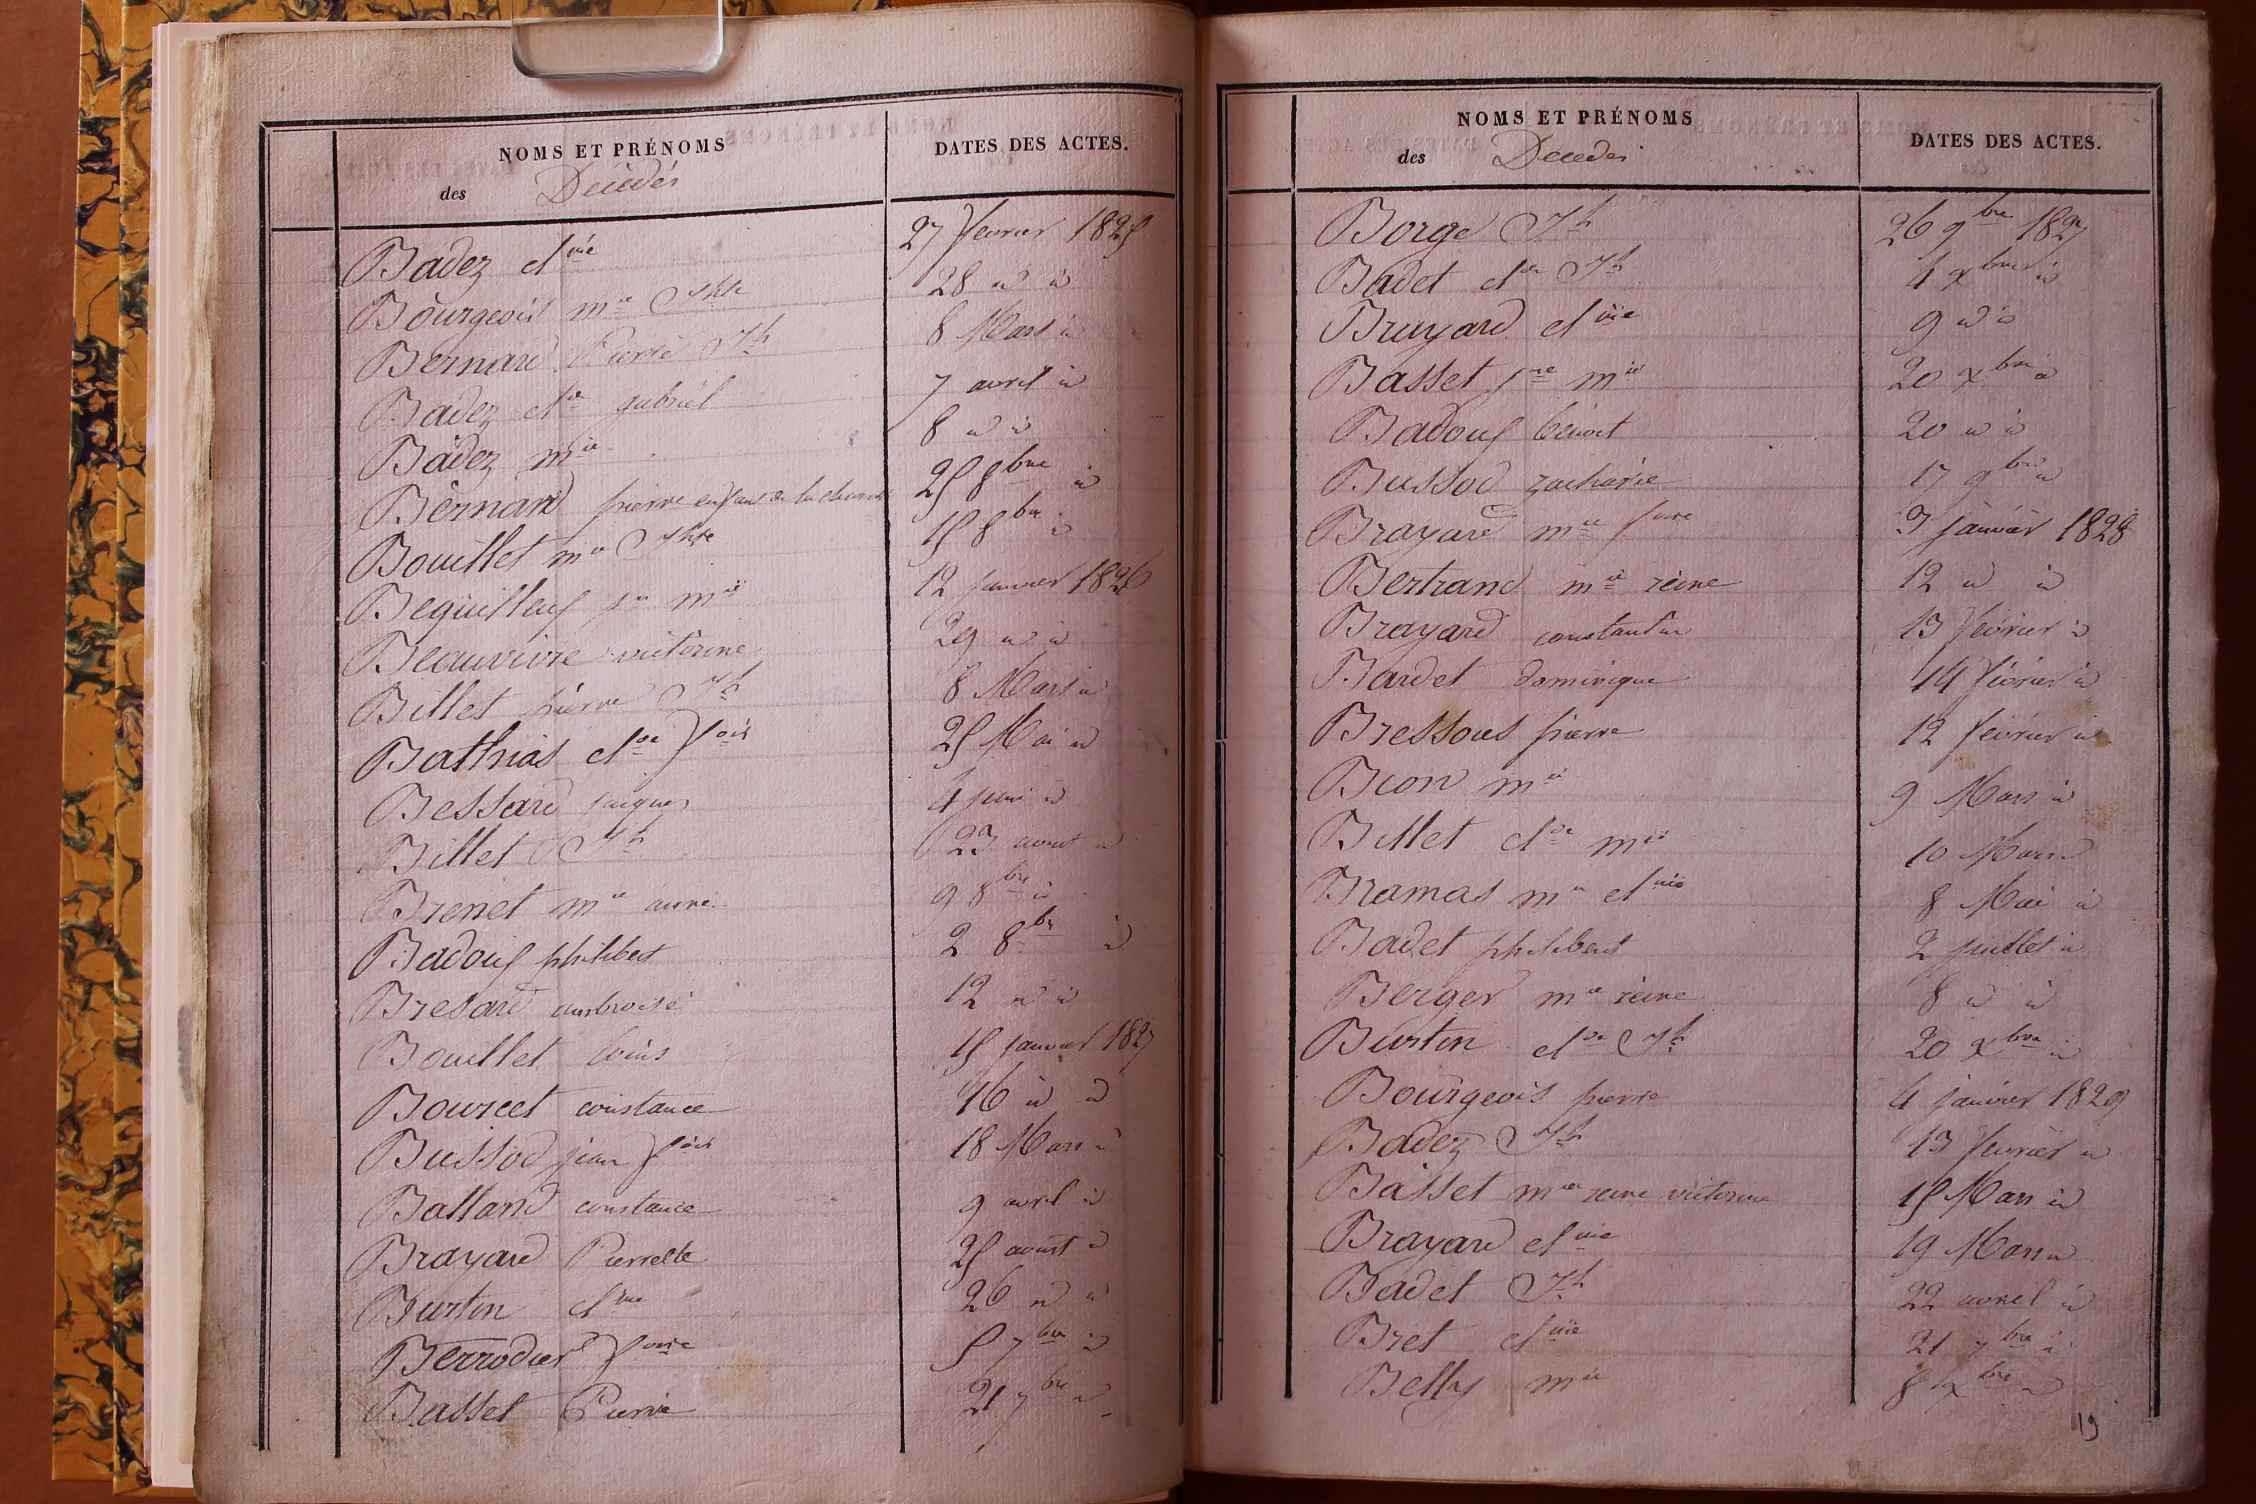 NOMS ET PRÉNOMS
des Décédés
DATES DES ACTES.
Badez clme 27 février 1825
Bourgeois mie Jhte 28 id id
Bernard Pierre Jh 8 Mars id
Badez cl gabriel 7 avril id
Badez mie 8 id id
Bernard pierre enfant de la charité 25 8bre id
Bouillet mie Jhte 15 8bre id
Bequilleuf mie 12 janvier 1826
Beauvivre victorine 29 id id
Billet pierre Jh 8 Mars id
Bathias clde fois 25 Mai id
Bessard jacques 4 juin id
Billet Jh 23 aout id
Brenet mie anne 9 8bre id
Badouf philibert 2 8bre id
Bresard ambroise 12 id id
Bouillet louis 15 janvier 1827
Bourcet constance 16 id id
Bussod jean fois 18 Mars id
Balland constance 9 avril id
Brayard Pierrette 25 aoust id
Burtin clme 26 id id
Berrodier foise 5 7bre id
Basset Pierre 21 7bre id
NOMS ET PRÉNOMS
des Décédés
DATES DES ACTES.
Borge Jh 26 9bre 1827
Badet clde Jh 4 xbre id
Bruyard clme 9 id id
Basset mie 20 xbre id
Badouf benoit 20 id id
Bussod zacharie 17 9bre id
Brayard mie 3 janvier 1828
Bertrand mie reine 12 id id
Brayard constantin 13 février id
Bardet dominique 14 février id
Bressoux pierre 12 février id
Bion mie 9 Mars id
Billet clde mie 10 Mars id
Bramas mie clme 8 Mai id
Badet philibert 2 juillet id
Berger mie reine 8 id id
Burtin clde Jh 20 xbre id
Bourgeois pierre 4 janvier 1829
Badez Jh 13 février id
Basset mie reine victorine 15 Mars id
Brayard clme 19 Mars id
Badet Jh 22 avril id
Bret clme 21 7bre id
Belly mie 8 xbre id
19